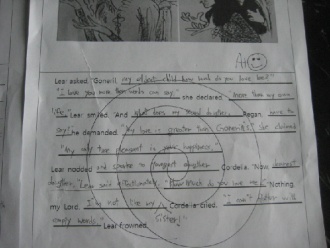 A+
Lear asked "Goneril my eldest child how much do you love me?"
"I love you more than words can say," she declared "more than my own
life." Lear smiled. "And what does my second daughter, Regan, have to
say?" she demanded. "My love is greater than Goneril's" she claimed
"My only true pleasant is your happiness."
Lear nodded and spoke to youngest daughter, Cordelia. "Now, youngest
daughter," Lear said affectionately. "How much do you love me?" "Nothing,
my Lord. I'm not like my sisters" Cordelia cried. "I can't
empty words." Lear frowned.